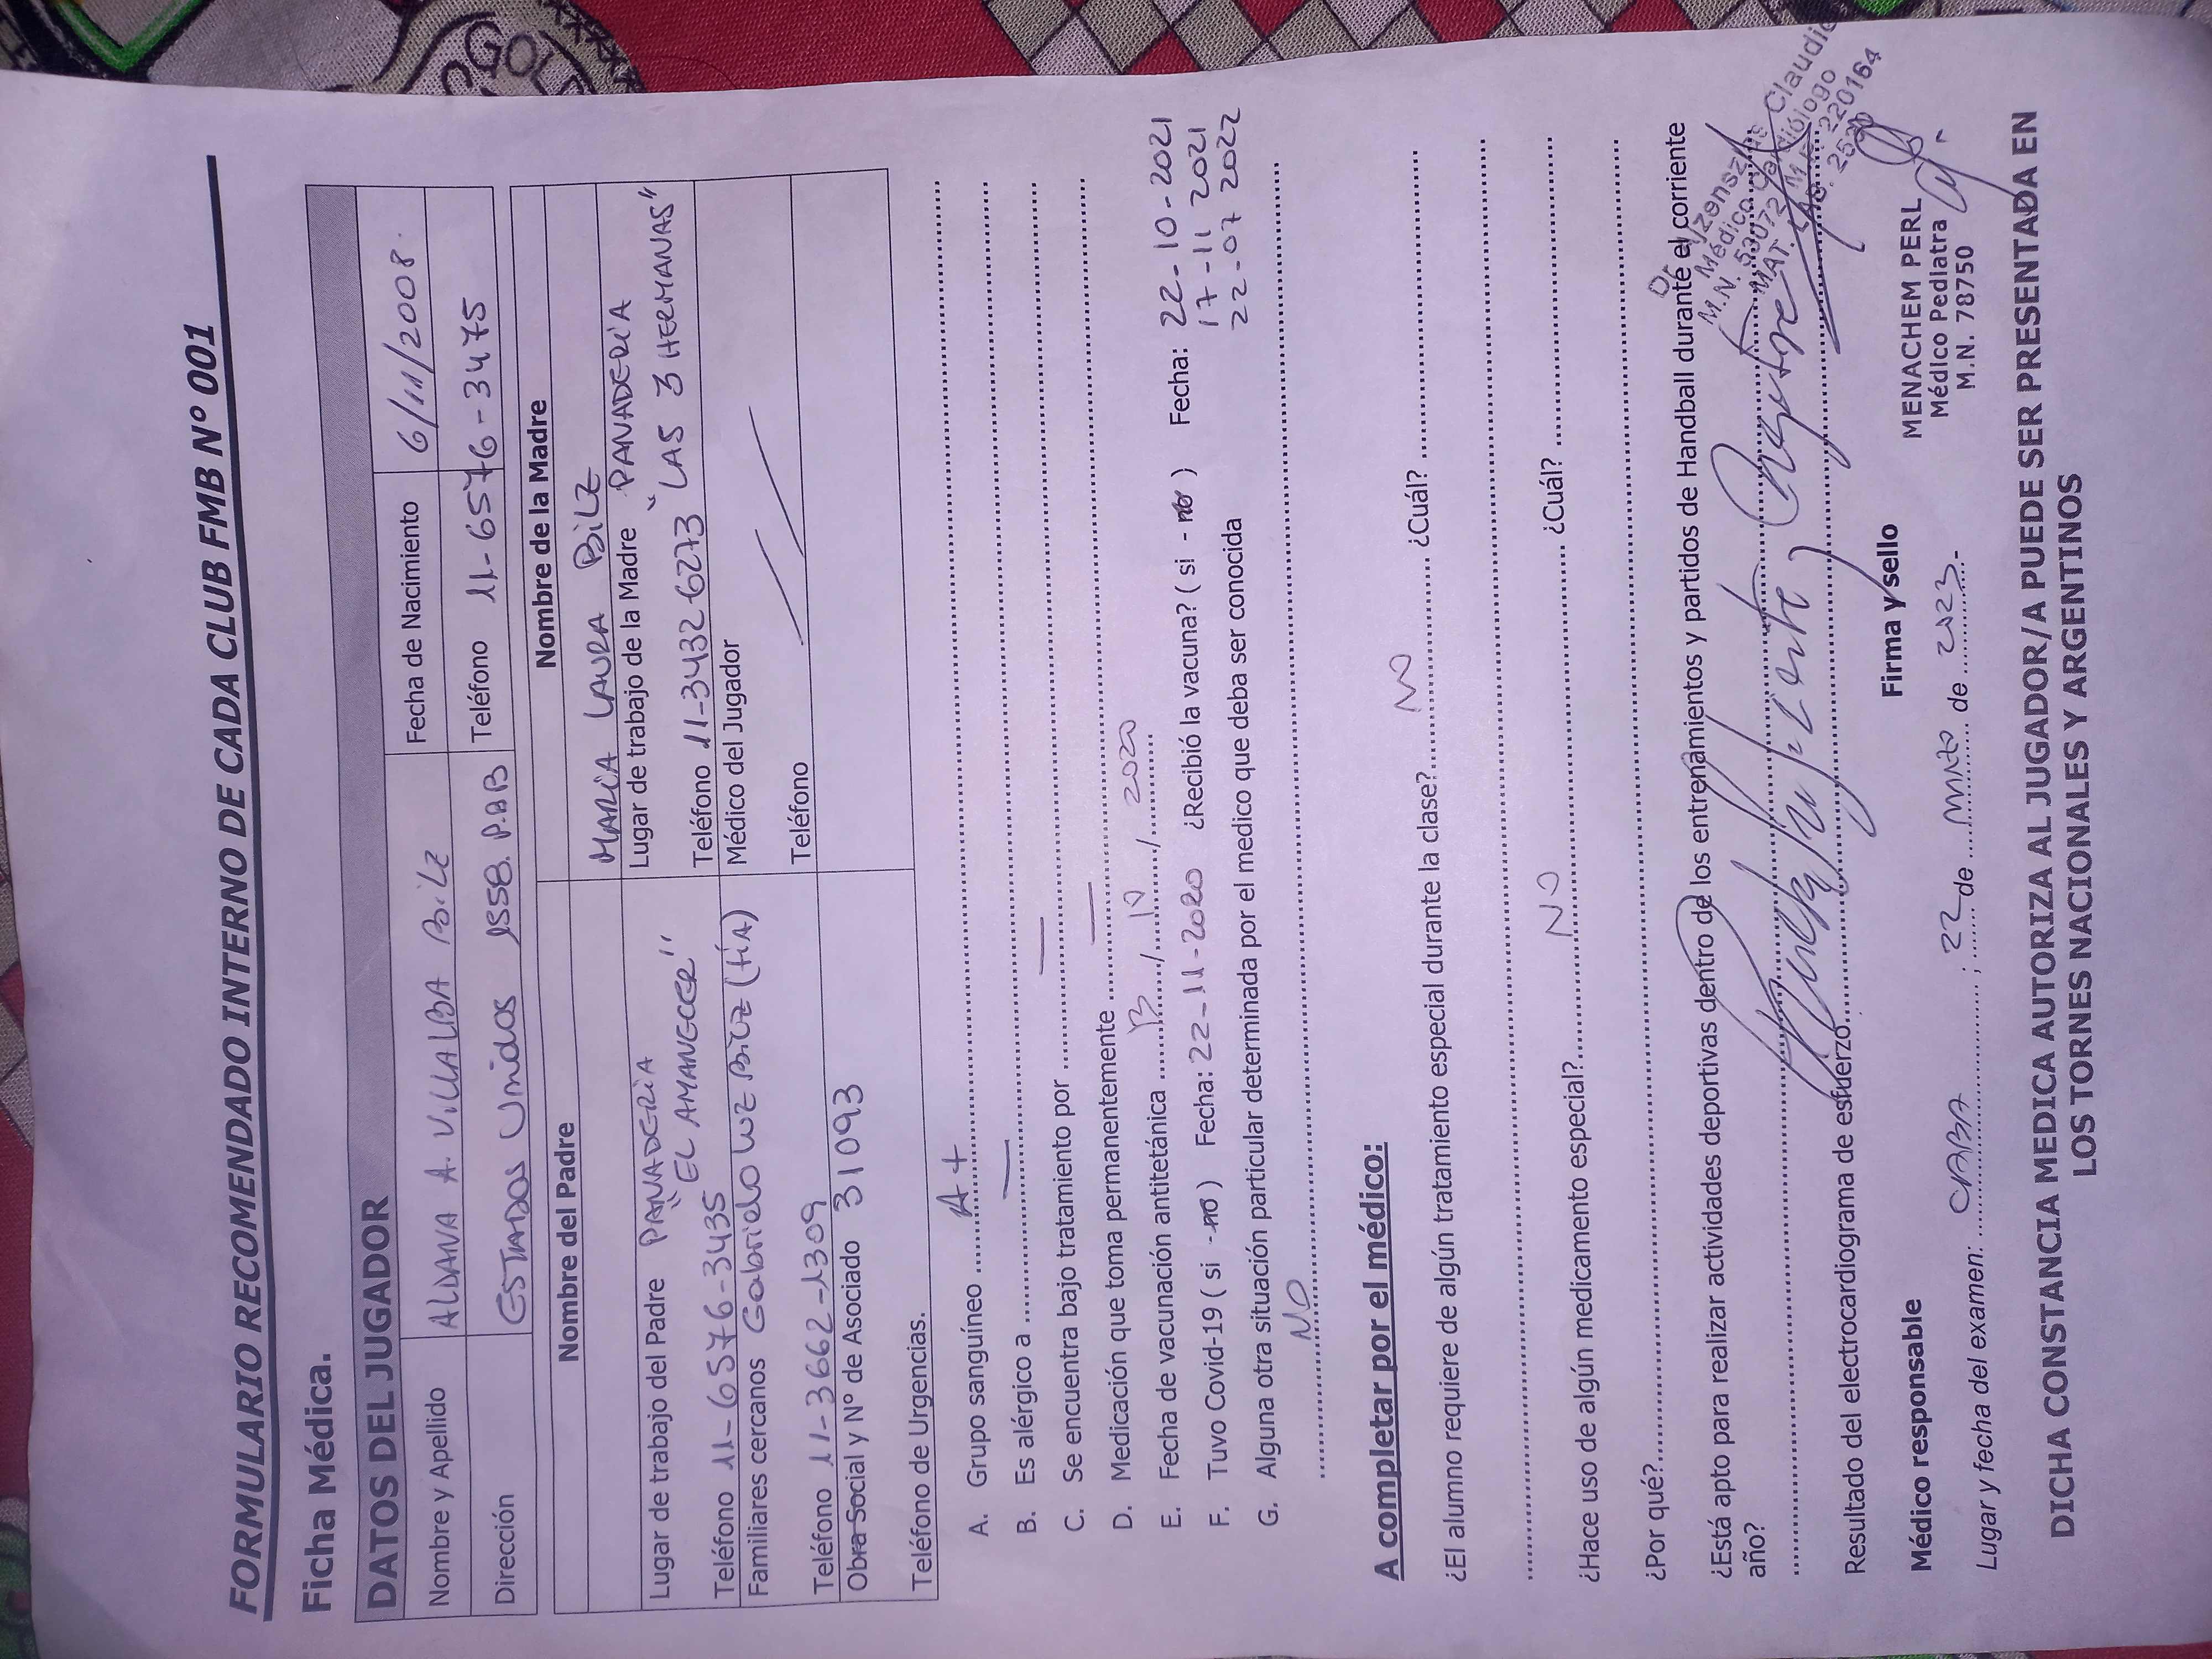 FORMULARIO RECOMENDADO INTERNO DE CADA CLUB FMB Nº 001
Ficha Médica.
DATOS DEL JUGADOR
Nombre y Apellido ALDANA A. VILLALBA BILZ Fecha de Nacimiento 6/11/2008.
Dirección ESTADOS UNIDOS 1558. P.BB Teléfono 11-6576-3475
Nombre del Padre Nombre de la Madre
MARIA LAURA BILZ
Lugar de trabajo del Padre PANADERIA Lugar de trabajo de la Madre PANADERIA
"EL AMANECER" "LAS 3 HERMANAS"
Teléfono 11-6576-3435 Teléfono 11-3432 6273
Familiares cercanos Gabriela Luz Bilz (tía) Médico del Jugador
Teléfono 11-3662-1309 Teléfono
Obra Social y Nº de Asociado 31093
Teléfono de Urgencias.
A. Grupo sanguíneo A+
B. Es alérgico a —
C. Se encuentra bajo tratamiento por —
D. Medicación que toma permanentemente —
E. Fecha de vacunación antitetánica / 10 / 2020
F. Tuvo Covid-19 ( si - no ) Fecha: 22-11-2020 ¿Recibió la vacuna? ( si - no ) Fecha: 22-10-2021
17-11 2021
22-07 2022
G. Alguna otra situación particular determinada por el medico que deba ser conocida
NO
A completar por el médico:
¿El alumno requiere de algún tratamiento especial durante la clase? NO ¿Cuál?
¿Hace uso de algún medicamento especial? NO ¿Cuál?
¿Por qué?
¿Está apto para realizar actividades deportivas dentro de los entrenamientos y partidos de Handball durante el corriente
año?
Resultado del electrocardiograma de esfuerzo
Claudio
Médico Cardiólogo
M.N. 53072 M.P. 220164
MAT.
Médico responsable Firma y sello
MENACHEM PERL
Médico Pediatra
M.N. 78750
Lugar y fecha del examen: CABA ; 22 de de 2023.
DICHA CONSTANCIA MEDICA AUTORIZA AL JUGADOR/A PUEDE SER PRESENTADA EN
LOS TORNES NACIONALES Y ARGENTINOS